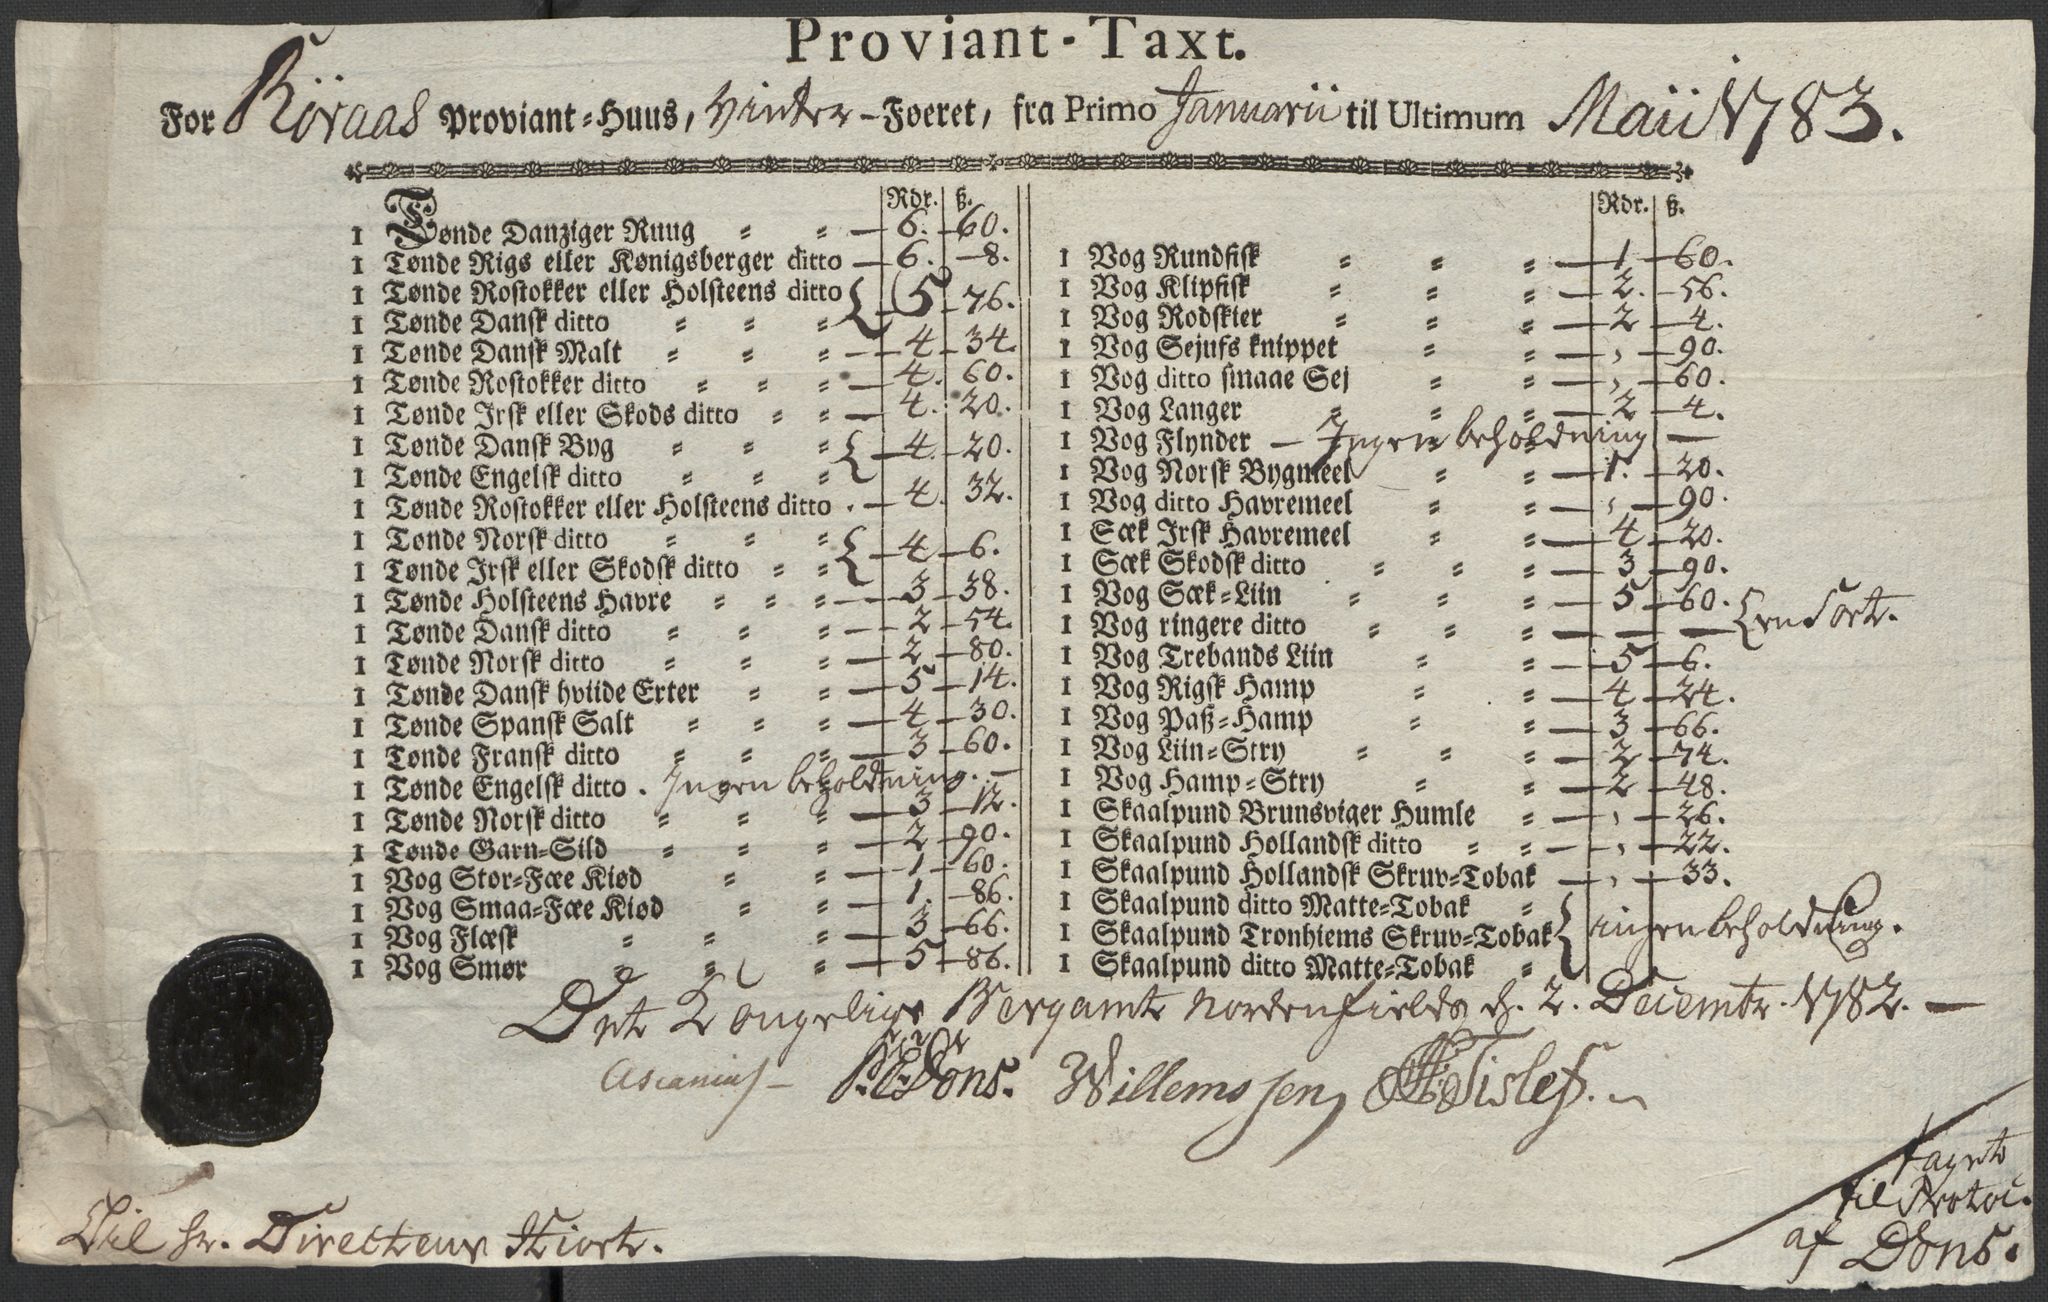 Proviant-Taxt.
For Röraas Proviant-Huus, Vinter-Foeret, fra Primo Januarii til Ultimum Maii 1783.
Rdr. ß.
1 Tønde Danziger Ruug 6. 60.
1 Tønde Rigs eller Kønigsberger ditto 6. 8.
1 Tønde Rostokker eller Holsteens ditto { 5 76.
1 Tønde Dansk ditto
1 Tønde Dansk Malt 4 34.
1 Tønde Rostokker ditto 4. 60.
1 Tønde Irsk eller Skods ditto 4. 20.
1 Tønde Dansk Byg { 4. 20.
1 Tønde Engelsk ditto
1 Tønde Rostokker eller Holsteens ditto 4. 32.
1 Tønde Norsk ditto { 4 6.
1 Tønde Irsk eller Skodsk ditto
1 Tønde Holsteens Havre 3 38.
1 Tønde Dansk ditto 2 54.
1 Tønde Norsk ditto 2 80.
1 Tønde Dansk hviide Erter 5 14.
1 Tønde Spansk Salt 4 30.
1 Tønde Fransk ditto 3 60.
1 Tønde Engelsk ditto . Ingen beholdning. —
1 Tønde Norsk ditto 3 12.
1 Tønde Garn-Sild 2 90.
1 Vog Stor-Fæe Kiød 1 60.
1 Vog Smaa-Fæe Kiød 1. 86.
1 Vog Flæsk 3 66.
1 Vog Smør 5 86.
Rdr. ß.
1 Vog Rundfisk 1 60.
1 Vog Klipfisk 2. 56.
1 Vog Rodskier 2 4.
1 Vog Sejufs knippet , 90.
1 Vog ditto smaae Sej , 60.
1 Vog Langer 2 4.
1 Vog Flynder — Ingen beholdning —
1 Vog Norsk Bygmeel 1. 20.
1 Vog ditto Havremeel , 90.
1 Sæk Irsk Havremeel 4 20.
1 Sæk Skodsk ditto 3 90.
1 Vog Sæk-Liin 5 60. { een Sort.
1 Vog ringere ditto — —
1 Vog Trebands Liin 5 6.
1 Vog Rigsk Hamp 4 24.
1 Vog Paß-Hamp 3 66.
1 Vog Liin-Stry 2 74.
1 Vog Hamp-Stry 2 48.
1 Skaalpund Brunsviger Humle , 26.
1 Skaalpund Hollandsk ditto , 22.
1 Skaalpund Hollandsk Skruv-Tobak , 33.
1 Skaalpund ditto Matte-Tobak
1 Skaalpund Tronhiems Skruv-Tobak { ingen beholdning.
1 Skaalpund ditto Matte-Tobak
Det Kongelige Bergamt Nordenfields d. 2. Decembr. 1782. —
Ascanius Dons. Willemssen
Til Hr. Directeur Hiort.
tagets
til Protoc.
af Dons.